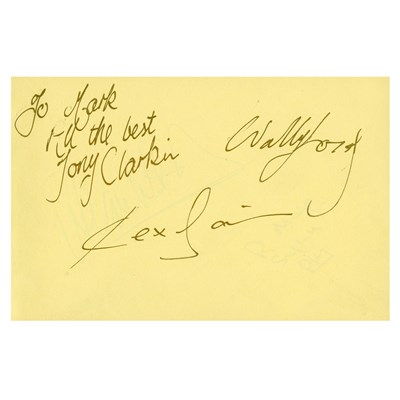 To Mark
All the best
Tony Clarkin
Wally Lowe
Rex